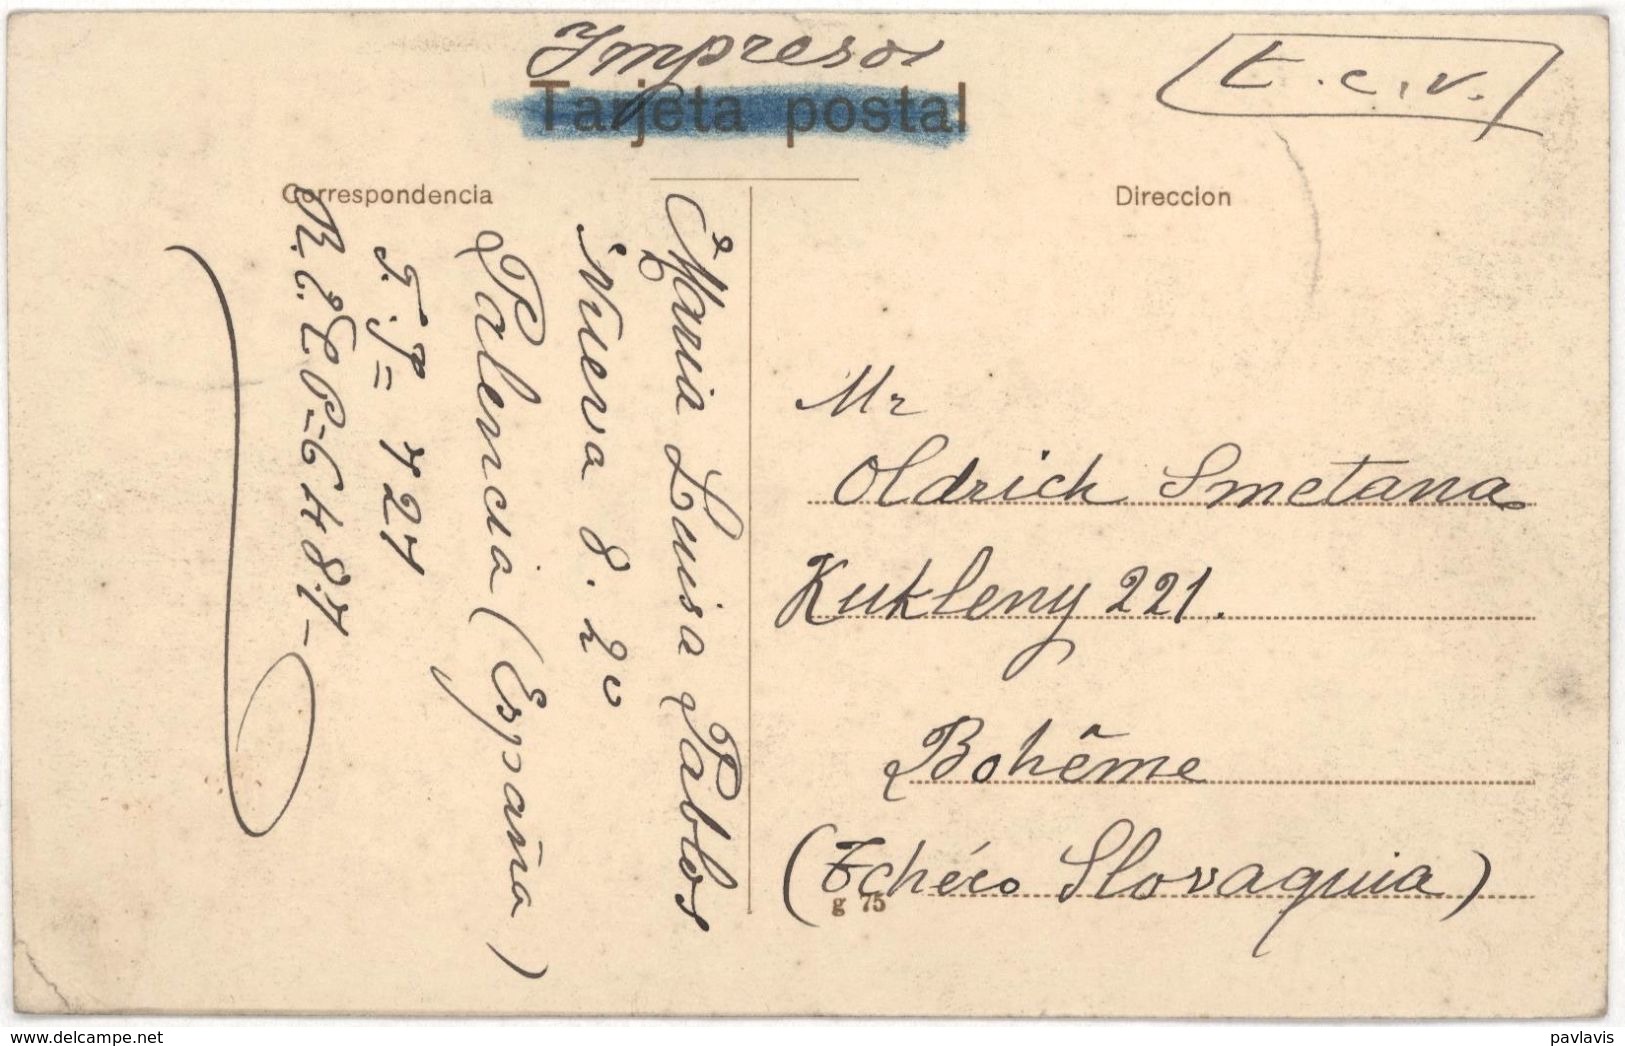 Impresos
Tarjeta postal
t.c.v.
Correspondencia
Direccion
Maria Luisa Pablos
Nueva 8. 2º
Palencia (España)
Mr
Oldrich Smetana
Kukleny 221.
Bohême
(Tchéco Slovaquia)
g 75
delcampe.net
pavlavis